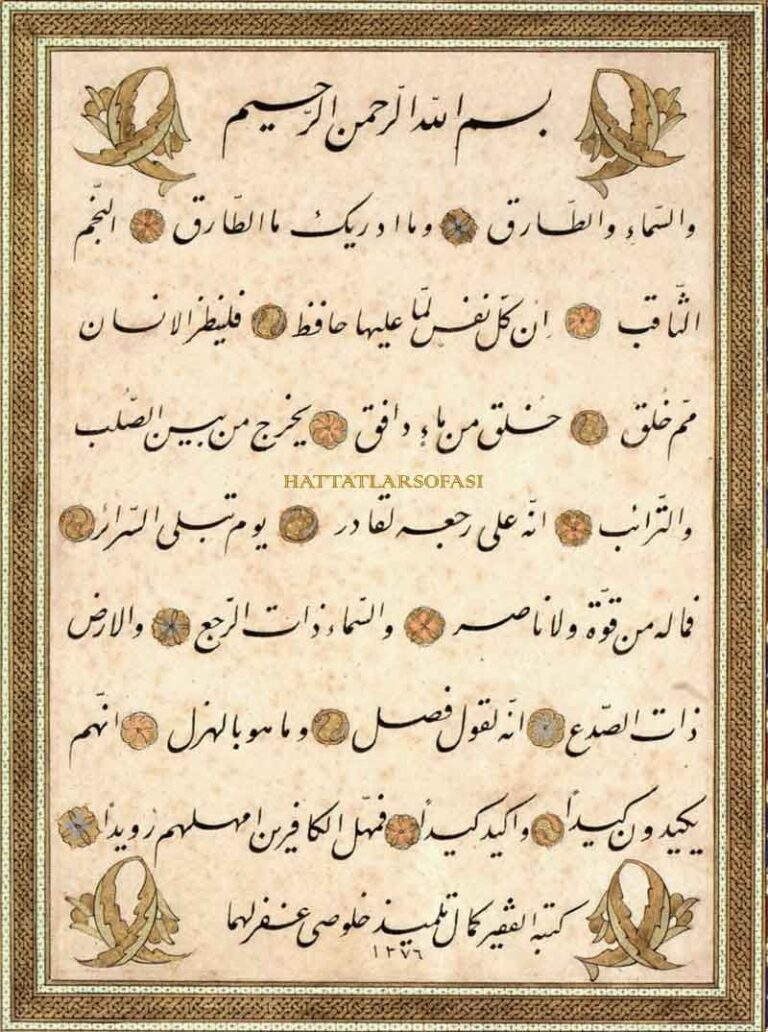 بسم الله الرّحمن الرّحيم
والسّماءِ والطّارق وما ادريك ماالطّارق النّجم
الثّاقب اِن كلّ نفس لمّا عليها حافظ فلينظر الانسان
ممّ خُلق خُلق من ماءٍ دافق يخرج من بين الصّلب
والتّرائب انّه على رجعه لقادر يوم تبلى السّرائر
فماله من قوّة ولا ناصر والسّماء ذات الرّجع والارض
ذات الصّدع انّه لقول فصل وما هو بالهزل انّهم
يكيدون كيداً واكيد كيداً فمهّل الكافرين امهلهم رويداً
كتبه الفقير كمال تلميذ خلوصى غفر لهما
١٣٧٦
HATTATLARSOFASI